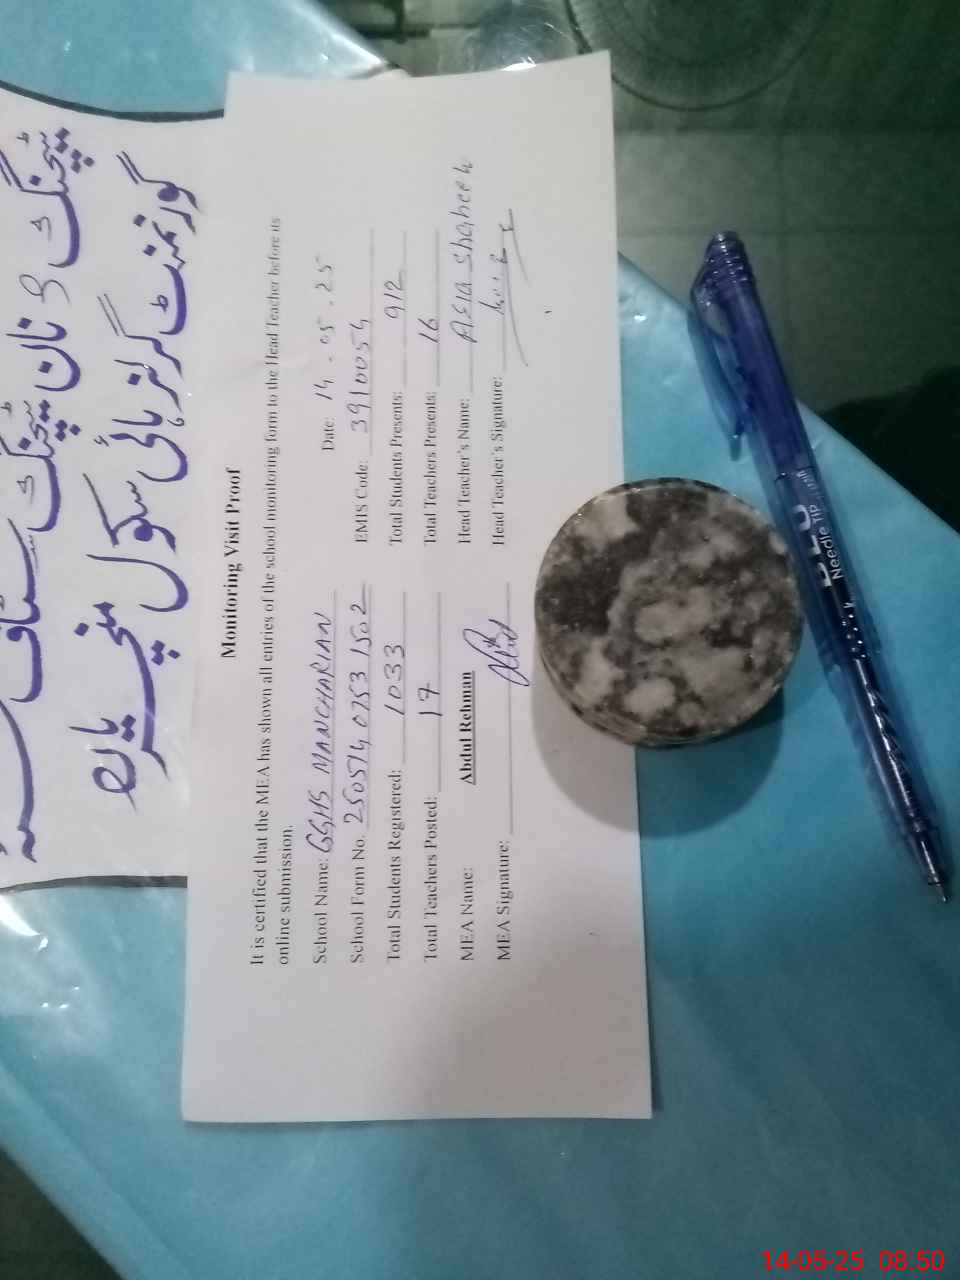 ٹیچنگ و نان ٹیچنگ سٹاف
گورنمنٹ گرلز ہائی سکول منچریاں
Monitoring Visit Proof
It is certified that the MEA has shown all entries of the school monitoring form to the Head Teacher before its
online submission.
School Name: GGHS MANCHARIAN Date: 14.05.25
School Form No. 2505140753 1502 EMIS Code: 3910054
Total Students Registered: 1033 Total Students Presents: 912
Total Teachers Posted: 17 Total Teachers Presents: 16
MEA Name: Abdul Rehman Head Teacher's Name: Asia Shaheen
MEA Signature: Head Teacher's Signature:
Needle TIP
14-05-25 08.50